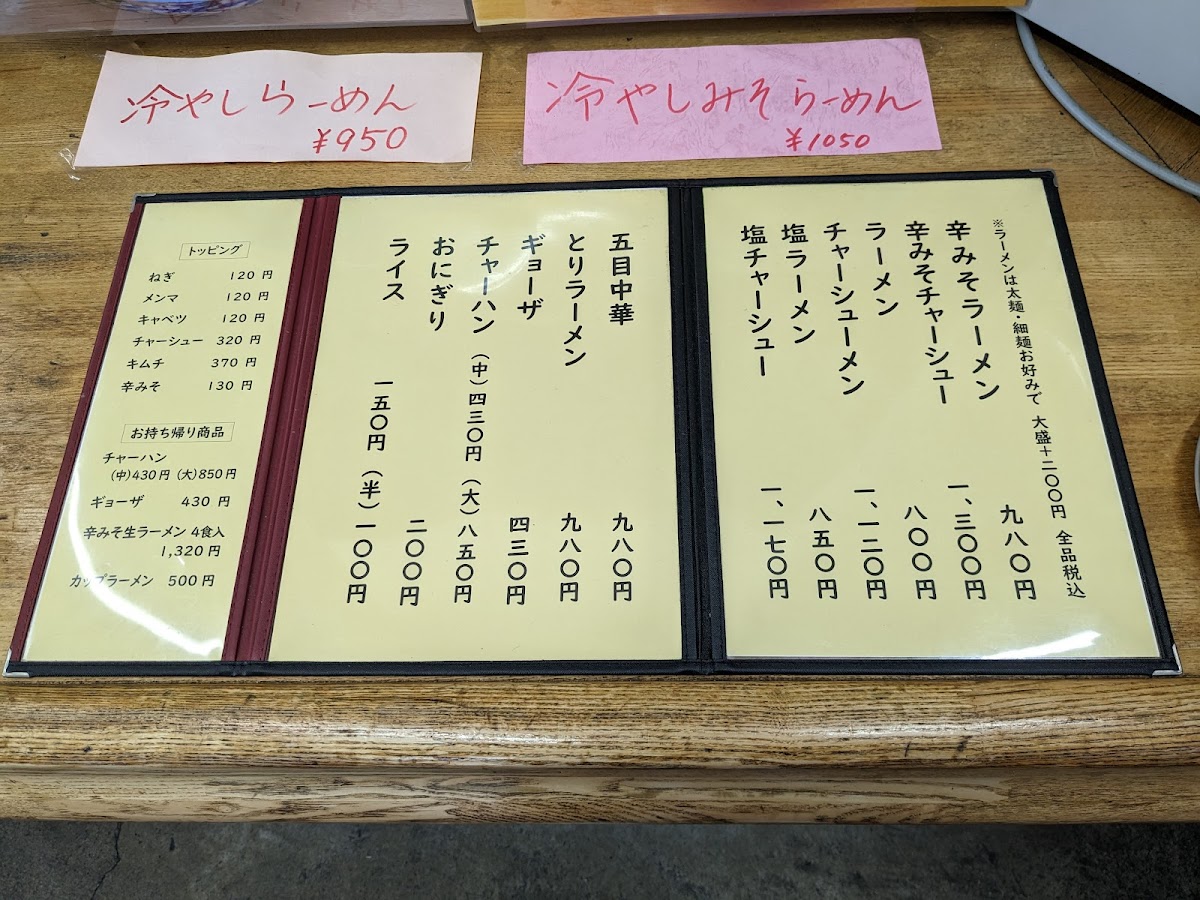 冷やしらーめん
¥950
冷やしみそらーめん
¥1050
※ラーメンは太麺・細麺お好みで 大盛+二〇〇円 全品税込
辛みそラーメン 九八〇円
辛みそチャーシュー 一、三〇〇円
ラーメン 八〇〇円
チャーシューメン 一、一二〇円
塩ラーメン 八五〇円
塩チャーシュー 一、一七〇円
五目中華 九八〇円
とりラーメン 九八〇円
ギョーザ 四三〇円
チャーハン (中)四三〇円 (大)八五〇円
おにぎり 二〇〇円
ライス 一五〇円 (半)一〇〇円
トッピング
ねぎ 120円
メンマ 120円
キャベツ 120円
チャーシュー 320円
キムチ 370円
辛みそ 130円
お持ち帰り商品
チャーハン
(中)430円 (大)850円
ギョーザ 430円
辛みそ生ラーメン 4食入
1,320円
カップラーメン 500円